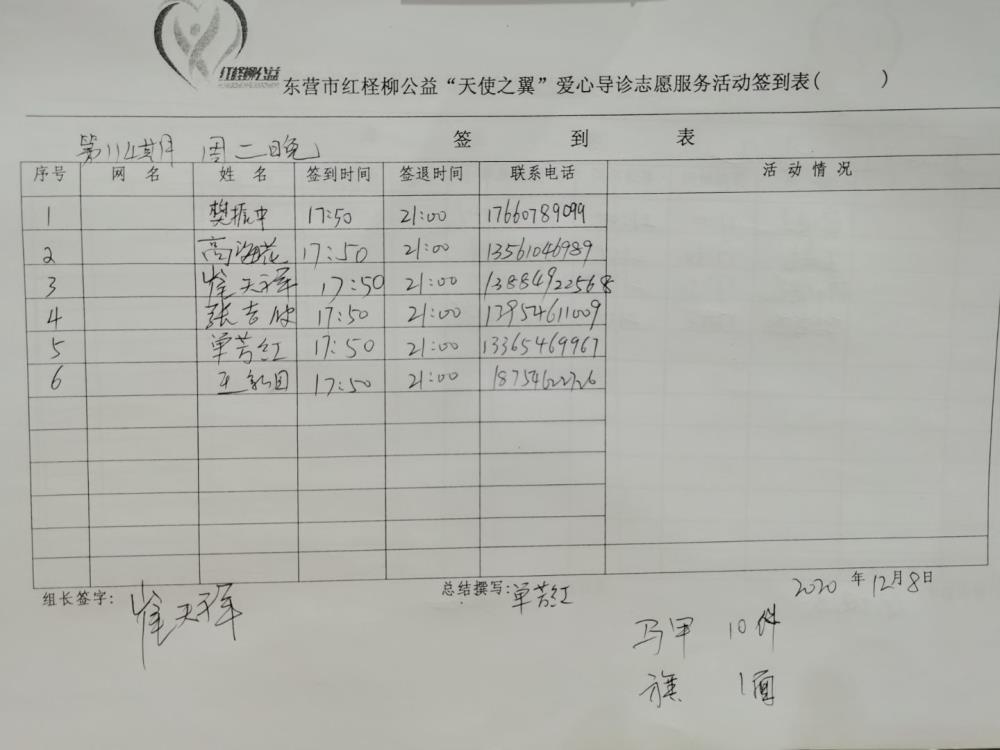 红柽柳公益
东营市红柽柳公益“天使之翼”爱心导诊志愿服务活动签到表( )
签 到 表
第114期 周二晚
序号 网 名 姓 名 签到时间 签退时间 联系电话 活 动 情 况
1 樊振中 17:50 21:00 17660789099
2 高海花 17:50 21:00 13561046989
3 崔天军 17:50 21:00 13884922568
4 张吉波 17:50 21:00 13954611009
5 单芳红 17:50 21:00 13365469967
6 王 17:50 21:00 18754622726
组长签字: 崔天军 总结撰写: 单芳红 2020 年 12月8日
马甲 10件
旗 1面